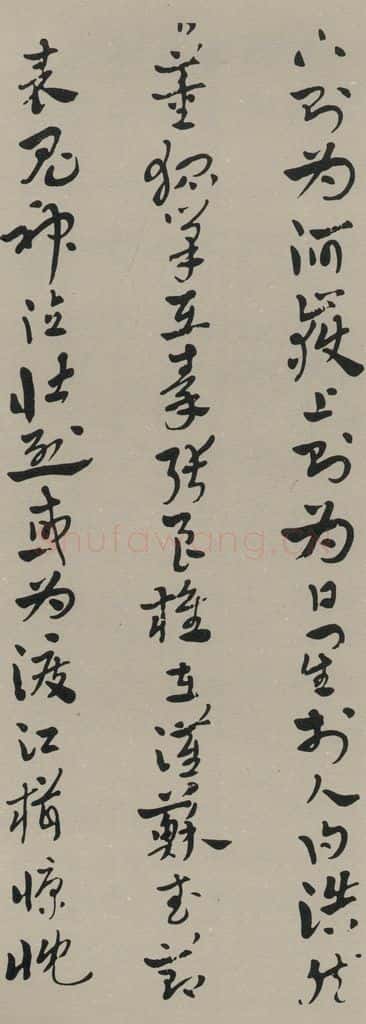 下則為河嶽上則為日星於人曰浩然
董狐筆在秦張良椎在漢蘇武節
表鬼神泣壯烈或為渡江楫慷慨
shufawang.cn